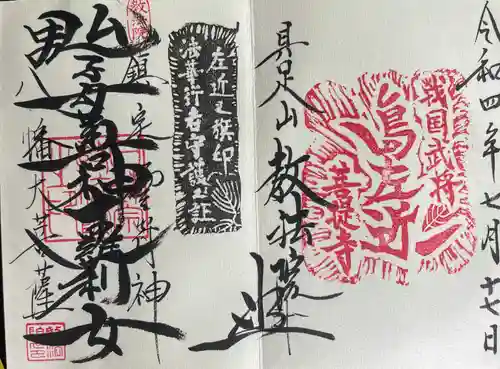 令和四年七月十七日
戦国武将
島左近
菩提寺
具足山教法院
左近之旗印
法華行者守護之証
鎮宅霊符神
鬼子母善神十羅刹女
八幡大菩薩
教法院